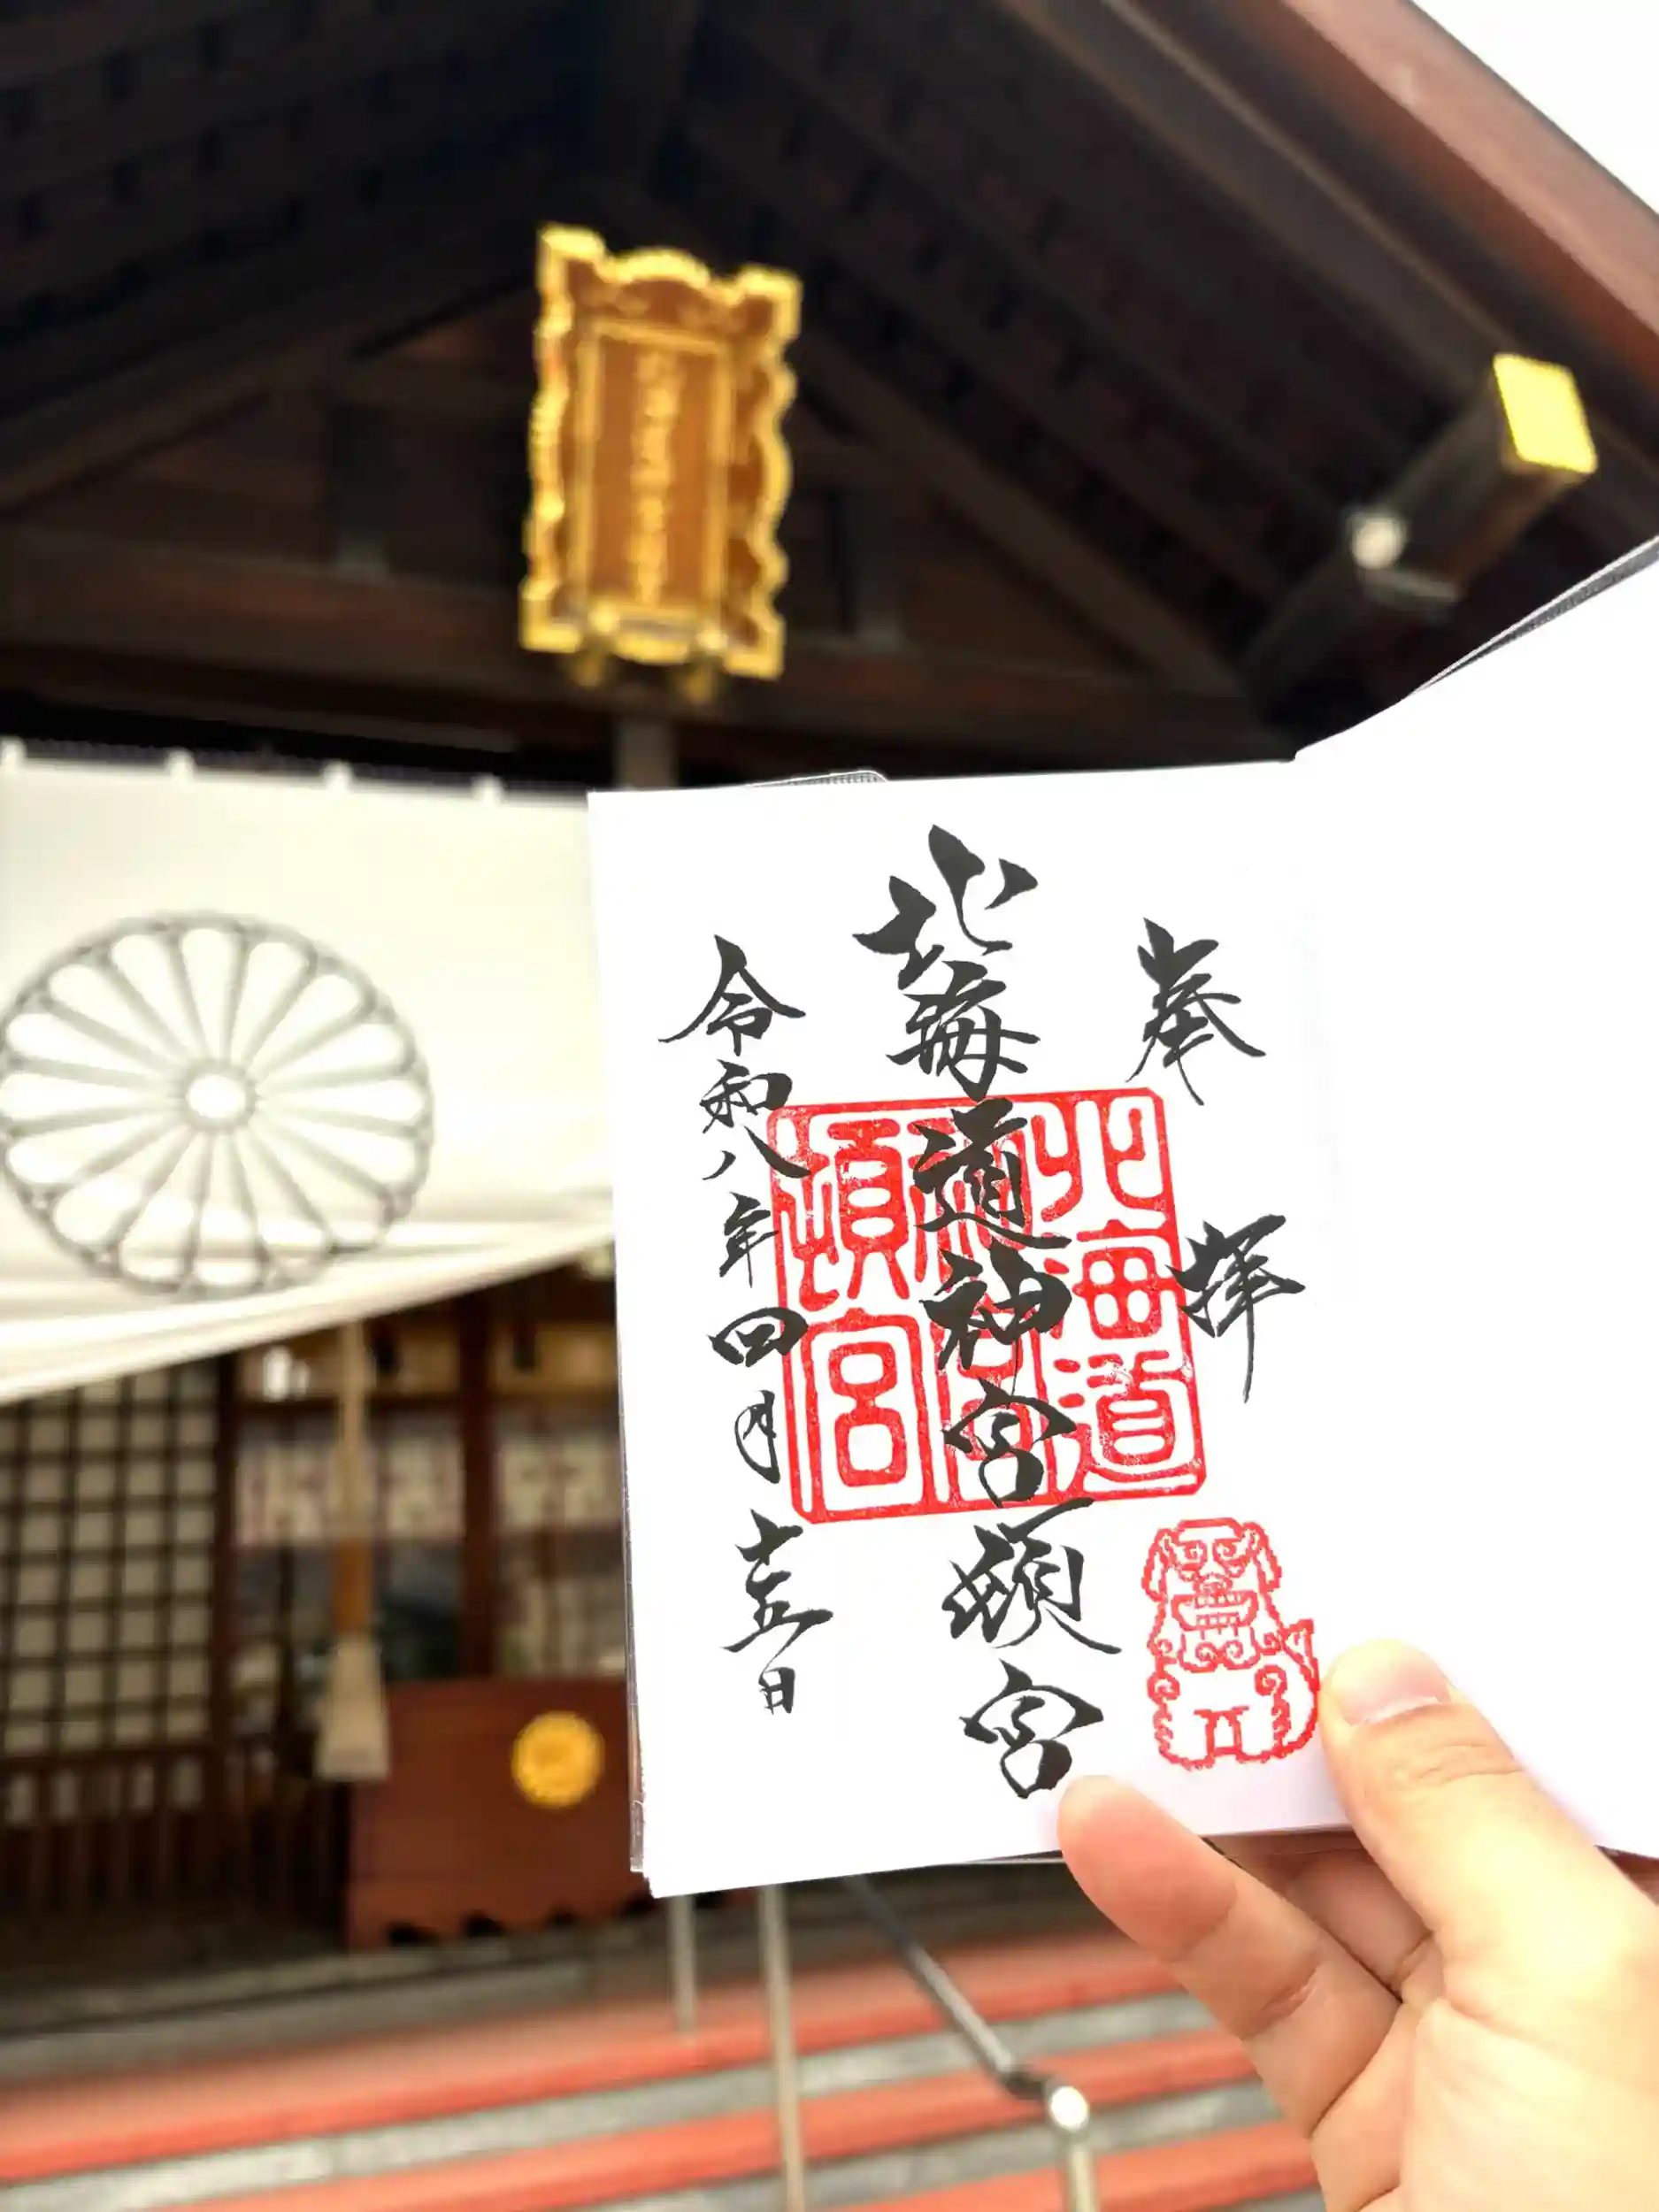 奉拝
北海道神宮頓宮
北海道
神宮
頓宮
令和八年四月十五日